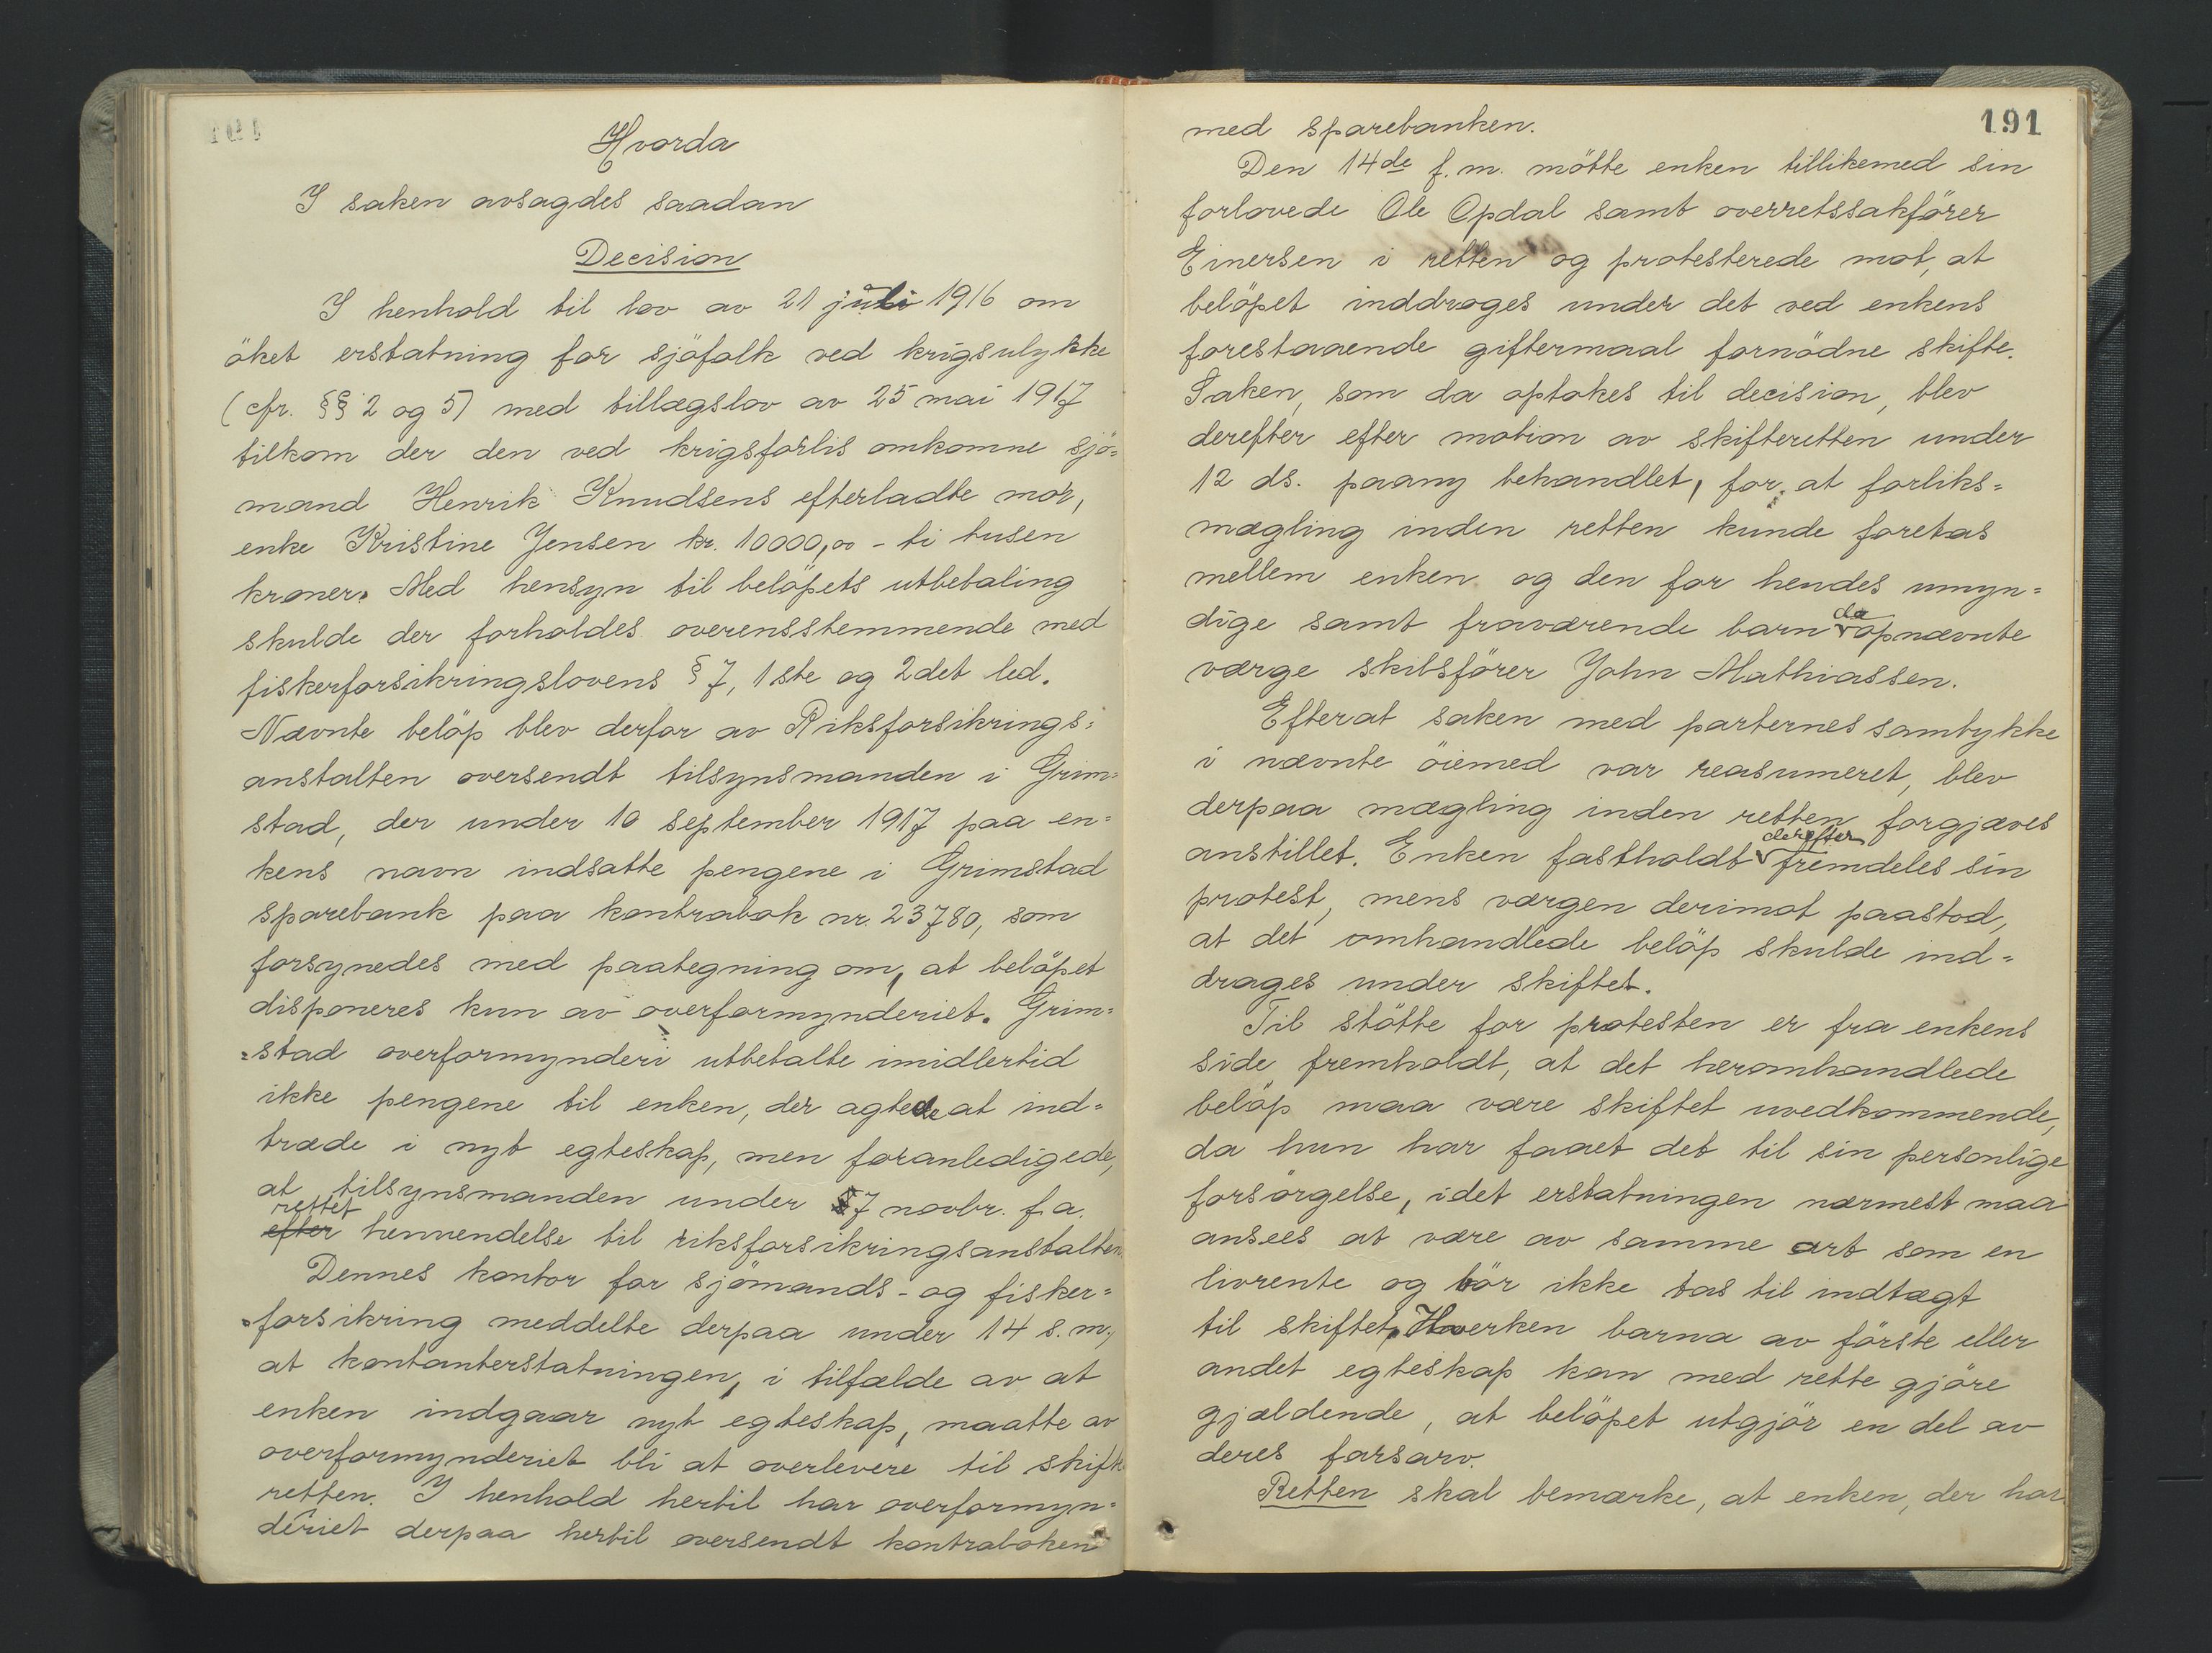 Hvorda
I saken avsagdes saadan
Decision
I henhold til lov av 21 juli 1916 om
öket erstatning for sjöfolk ved krigsulykke
(cfr. §§ 2 og 5) med tillægslov av 25 mai 1917
tilkom der den ved krigsforlis omkomne sjö=
mand Henrik Knudsens efterladte mor,
enke Kristine Jensen kr. 10000,00 - ti tusen
kroner. Med hensyn til belöpets utbetaling
skulde der forholdes overensstemmende med
fiskerforsikringslovens § 7, 1ste og 2det led.
Nævnte belöp blev derfor av Riksforsikrings=
anstalten oversendt tilsynsmanden i Grim=
stad, der under 10 september 1917 paa en=
kens navn indsatte pengene i Grimstad
sparebank paa kontrabok nr. 23780, som
forsynedes med paategning om, at belöpet
disponeres kun av overformynderiet. Grim=
=stad overformynderi utbetalte imidlertid
ikke pengene til enken, der agtede at ind=
træde i nyt egteskap, men foranledigede,
at tilsynsmanden under 7 novbr. f.a.
rettet
efter henvendelse til riksforsikringsanstalten
Dennes kontor for sjömands- og fisker=
=forsikring meddelte derpaa under 14 s.m.,
at kontanterstatningen, i tilfælde av at
enken indgaar nyt egteskap, maatte av
overformynderiet bli at overlevere til skifte
retten. I henhold hertil har overformyn=
deriet derpaa hertil oversendt kontraboken
191
med sparebanken.
Den 14de f.m. mötte enken tillikemed sin
forlovede Ole Opdal samt overretssakförer
Einersen i retten og protesterede mot, at
belöpet inddrages under det ved enkens
forestaaende giftermaal fornödne skifte.
Saken, som da optokes til decision, blev
derefter efter motion av skifteretten under
12 ds. paany behandlet, for at forliks=
mægling inden retten kunde foretas
mellem enken og den for hendes umyn=
da
dige samt fraværende barn opnævnte
værge skibsförer John Mathiassen.
Efterat saken med parternes samtykke
i nævnte öiemed var reasumeret, blev
derpaa mægling inden retten forgjæves
derefter
anstillet. Enken fastholdt fremdeles sin
protest, mens værgen derimot paastod,
at det omhandlede belöp skulde ind=
drages under skiftet.
Til stötte for protesten er fra enkens
side fremholdt, at det heromhandlede
belöp maa være skiftet uvedkommende,
da hun har faaet det til sin personlige
forsörgelse, idet erstatningen nærmest maa
ansees at være av samme art som en
livrente og bör ikke tas til indtægt
til skiftet, Hverken barna av förste eller
andet egteskap kan med rette gjöre
gjældende, at belöpet utgjör en del av
deres farsarv.
Retten skal bemærke, at enken, der har